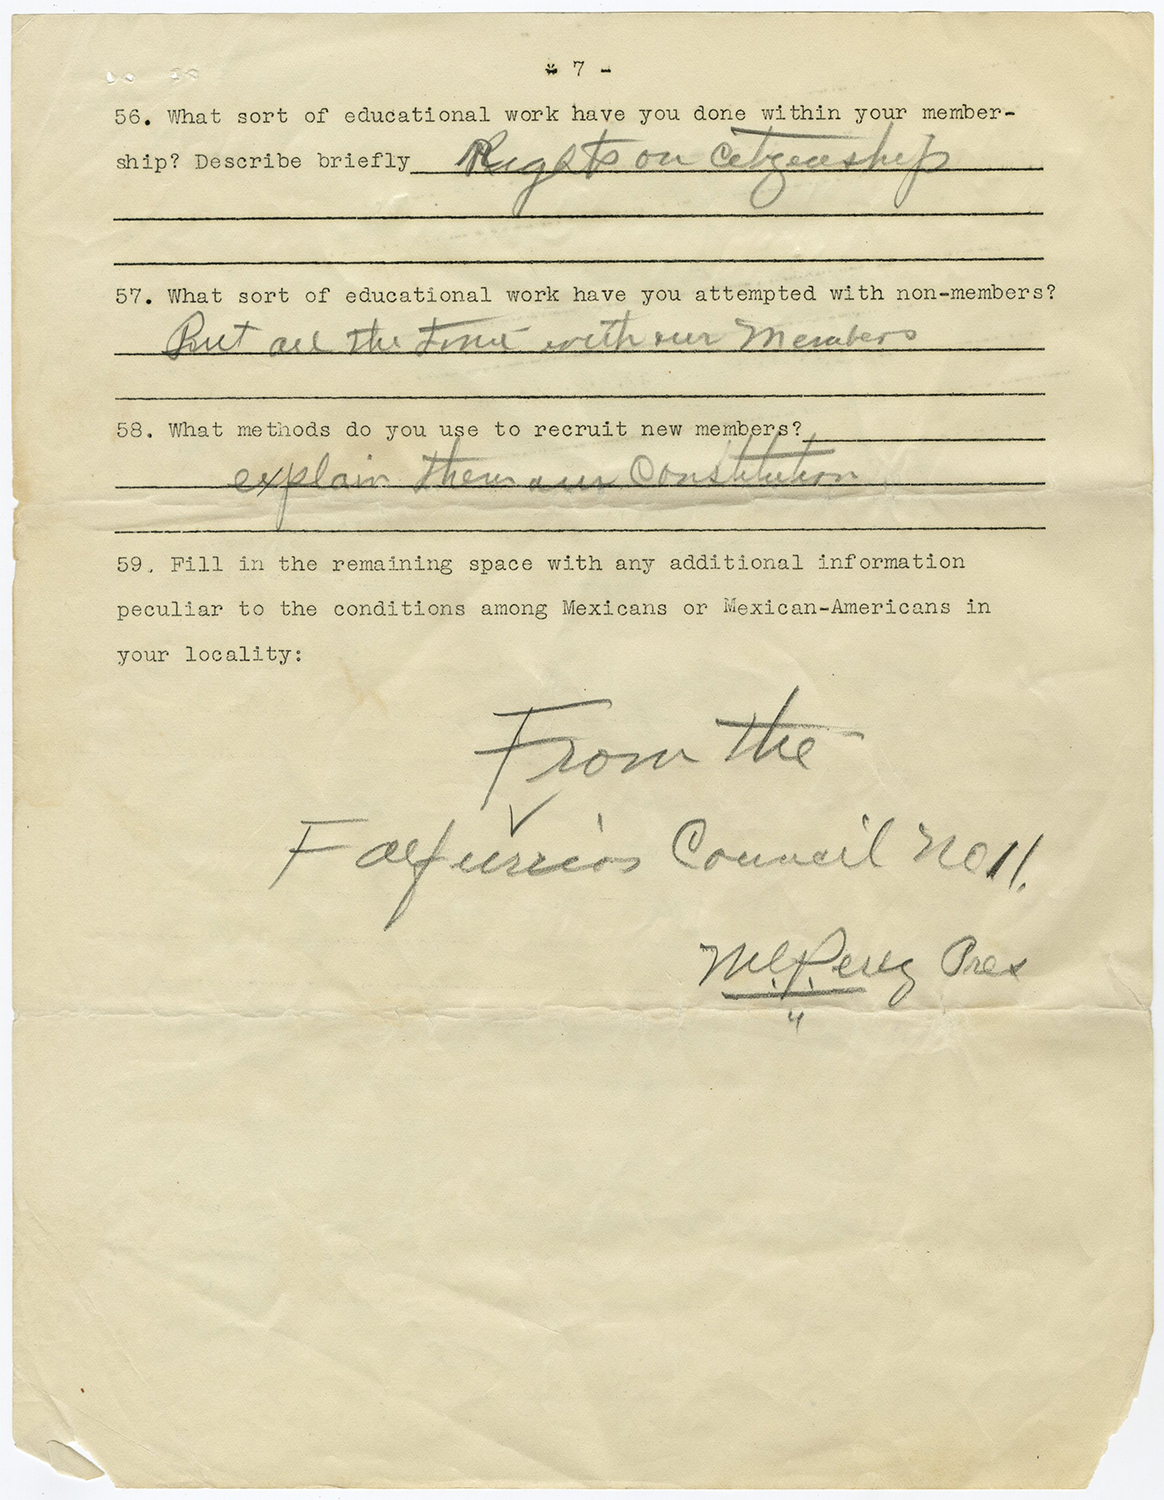 * 7 -
56. What sort of educational work have you done within your member-
ship? Describe briefly Rights on Citizenship
57. What sort of educational work have you attempted with non-members?
Put all the time with our Members
58. What methods do you use to recruit new members?
explain them our Constitution
59. Fill in the remaining space with any additional information
peculiar to the conditions among Mexicans or Mexican-Americans in
your locality:
From the
Falfurrias Council No 11.
Perez Pres